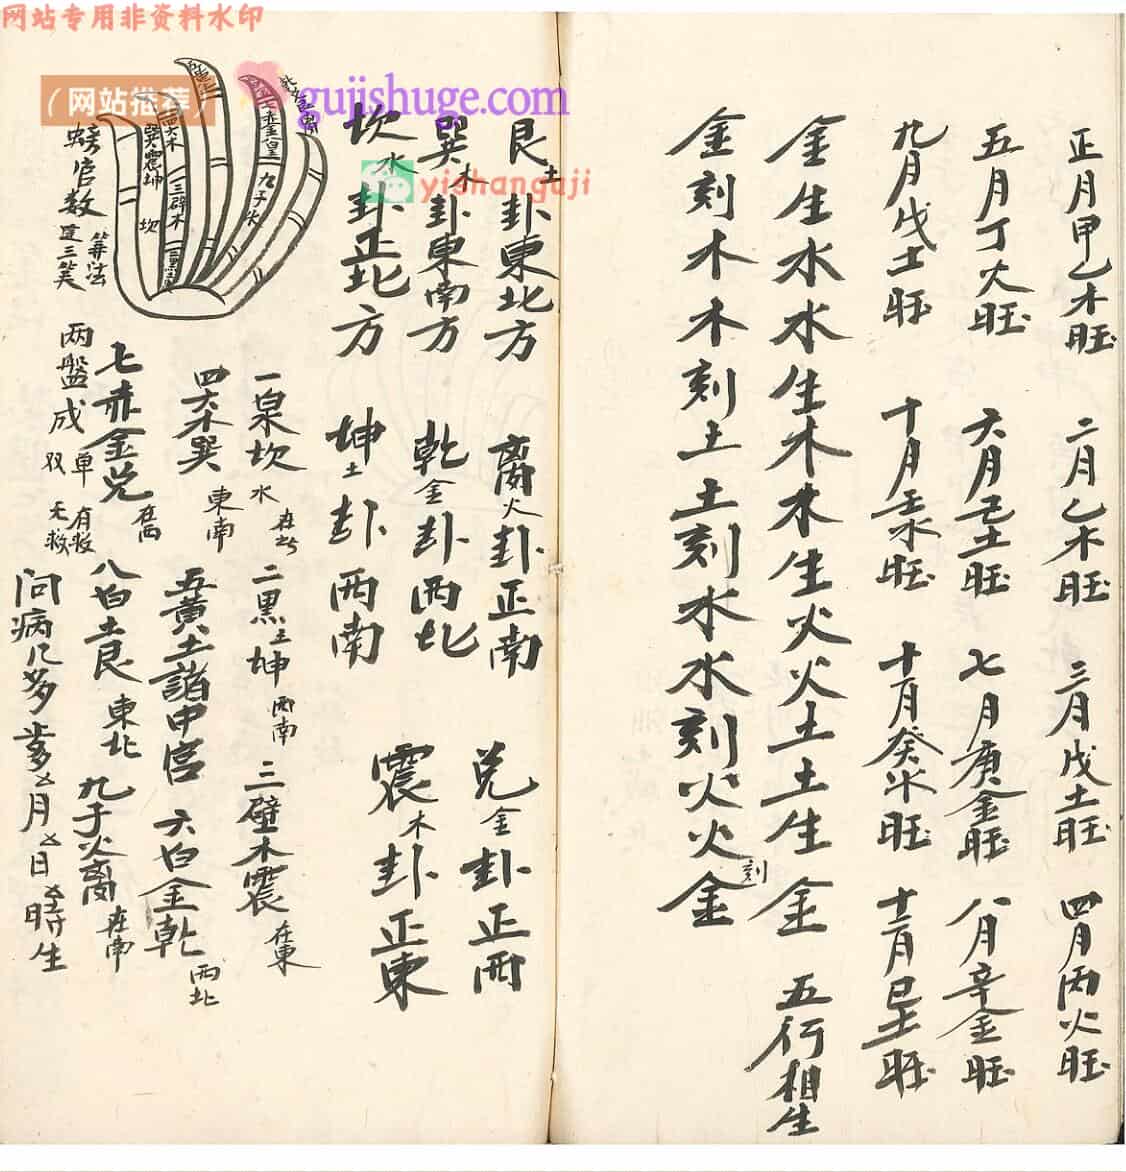 网站专用非资料水印
(网站推荐)
gujishuge.com
yishanguji
正月甲乙木旺 二月乙木旺 三月戊土旺 四月丙火旺
五月丁火旺 六月己土旺 七月庚金旺 八月辛金旺
九月戊土旺 十月壬水旺 十一月癸水旺 十二月己土旺
金生水水生木木生火火土土生金 五行相生
金刻木木刻土土刻水水刻火火刻金
艮土卦東北方 离火卦正南 兑金卦正西
巽木卦東南方 乾金卦西北 震木卦正東
坎水卦正北方 坤土卦西南
一泉坎水在北 二黑土坤西南 三壁木震在東
四六木巽東南 五黄土諸中宫 六白金乾西北
七赤金兑在西 八白土艮東北 九子火离在南
数 算法
两盤成 单有救 双无救
问病几多岁 月 日 時生
九子火
三碧木
巽震坤
坎